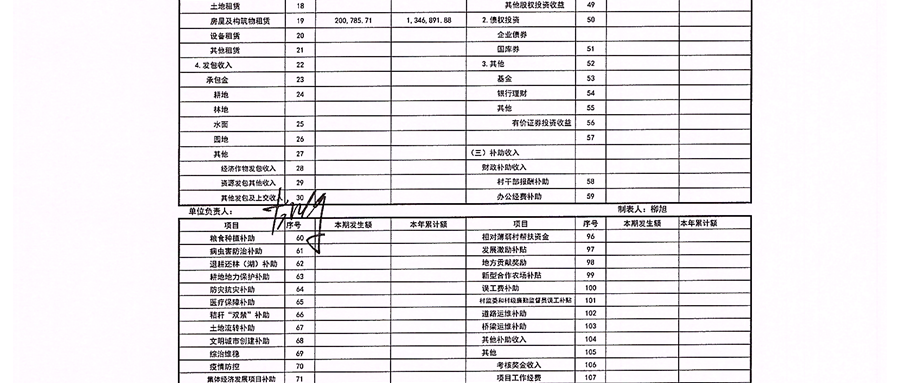 土地租赁 18 其他股权投资收益 49
房屋及构筑物租赁 19 200,785.71 1,346,891.88 2.债权投资 50
设备租赁 20 企业债券
其他租赁 21 国库券 51
4.发包收入 22 3.其他 52
承包金 23 基金 53
耕地 24 银行理财 54
林地 其他 55
水面 25 有价证券投资收益 56
园地 26 57
其他 27 （三）补助收入
经济作物发包收入 28 财政补助收入
资源发包其他收入 29 村干部报酬补助 58
其他发包及上交收入 30 办公经费补助 59
单位负责人： 制表人：柳旭
项目 序号 本期发生额 本年累计额 项目 序号 本期发生额 本年累计额
粮食种植补助 60 相对薄弱村帮扶资金 96
病虫害防治补助 61 发展激励补贴 97
退耕还林（湖）补助 62 地方贡献奖励 98
耕地地力保护补助 63 新型合作农场补贴 99
防灾抗灾补助 64 误工费补助 100
医疗保障补助 65 村监委和村级廉勤监督员误工补贴 101
秸秆“双禁”补助 66 道路运维补助 102
土地流转补助 67 桥梁运维补助 103
文明城市创建补助 68 其他补助收入 104
综治维稳 69 其他 105
疫情防控 70 考核奖金收入 106
集体经济发展项目补助 71 项目工作经费 107